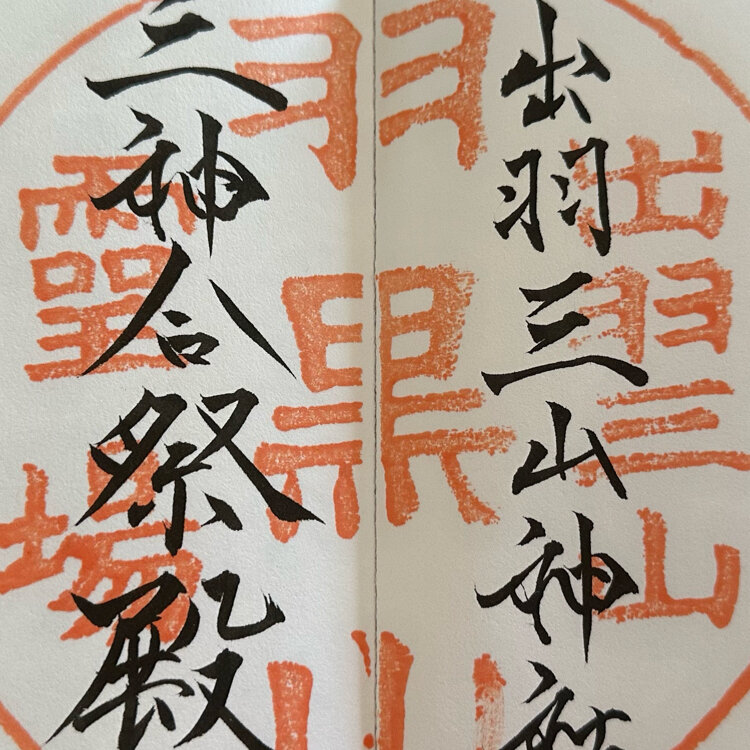 出羽三山神社
三神合祭殿
出羽三山
羽黒山
靈場